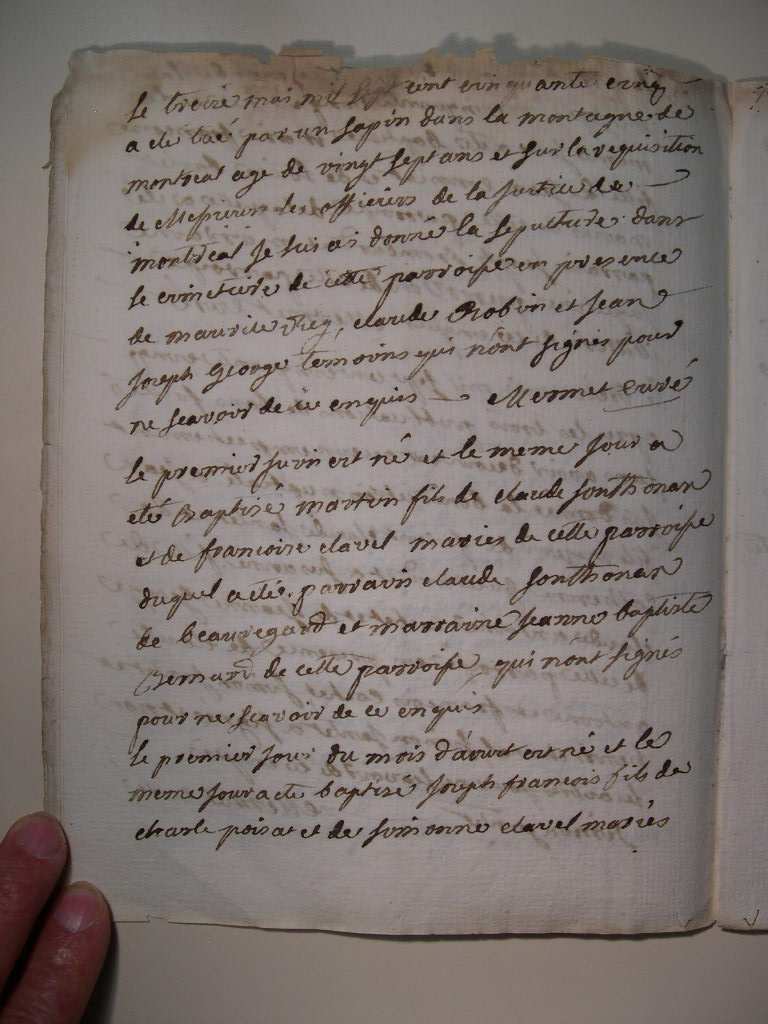 Le treize mai mil sept cent cinquante cinq
a ete tué par un sapin dans la montagne de
montreal age de vingt sept ans et sur la requisition
de Messieurs les officiers de la Justice de
montreal Je sus ai donné la sepulture dans
le cimetiere de cette parroisse en presence
de maurice claude Robin et Jean
Joseph George temoins qui n'ont signés pour
ne scavoir de ce enquis Mermet curé
le premier juin est né et le meme Jour a
eté Baptisé martin fils de claude Sonthonax
et de francoise clavel mariés de cette parroisse
duquel a eté parrain claude Sonthonax
de beauregard et marraine Jeanne baptiste
Bernard de cette parroisse qui n'ont signés
pour ne scavoir de ce enquis
le premier Jour du mois d'aoust est né et le
meme Jour a ete baptisé Joseph francois fils de
charle poisat et de simonne clavel mariés